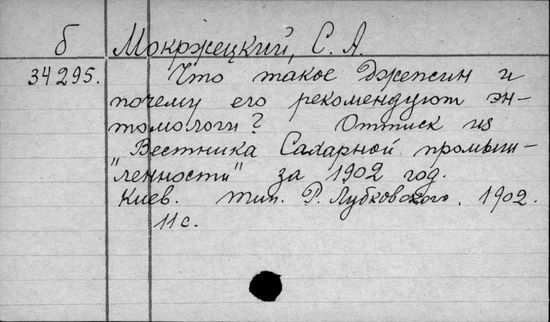 б Мокржецкий, С. А.
34295. Что такое Джепсин и
почему его рекомендуют эн-
томологи? Оттиск из
"Вестника Сахарной промыш-
ленности" за 1902 год.
Киев. тип. Р. Лубковского. 1902.
11 с.